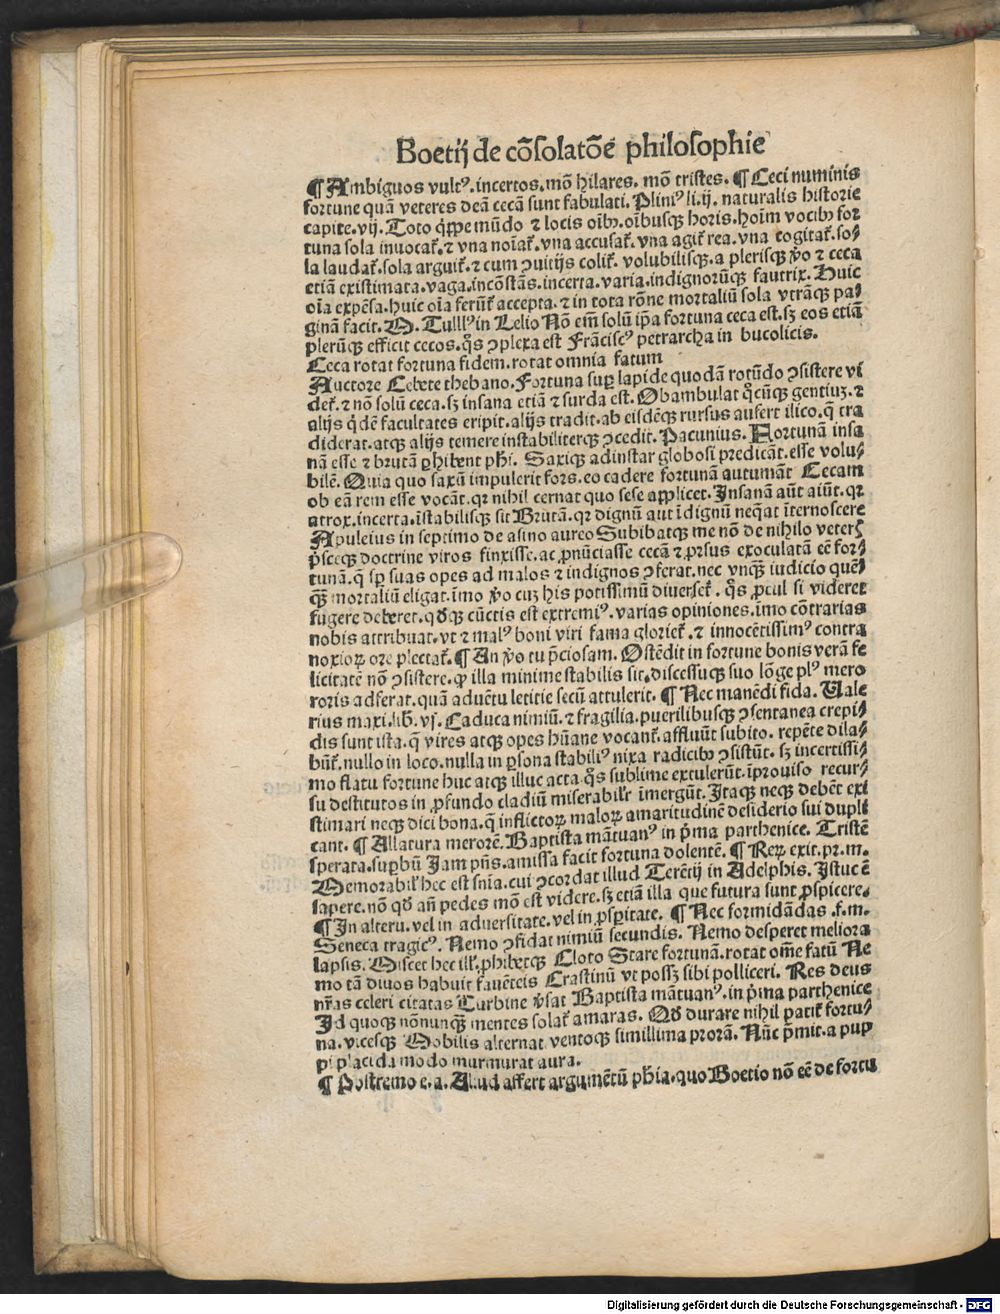 Boetij de cōsolatōe philosophie
¶ Ambiguos vultꝰ. incertos. mō hilares. mō tristes. ¶ Ceci numinis
fortune quā veteres deā cecā sunt fabulati. Pliniꝰ li. ij. naturalis historie
capite. vij. Toto q̄ppe mūdo ⁊ locis oībꝫ. oībusqꝫ horis. hoīm vocibꝫ for
tuna sola inuocat̄. ⁊ vna noīat̄. vna accusat̄. vna agit̄ rea. vna cogitat̄. so⸗
la laudat̄. sola arguit̄. ⁊ cum ↄuitijs colit̄. volubilisqꝫ. a plerisqꝫ ꝟo ⁊ ceca
etiā existimata. vaga. incōstās. incerta. varia. indignorūqꝫ fautrix. Huic
oīa expēsa. huic oīa ferūt̄ accepta. ⁊ in tota rōne mortaliū sola vtrāqꝫ pa⸗
ginā facit. M. Tulllꝰ in Lelio Nō em̄ solū ip̄a fortuna ceca est. sꝫ eos etiā
plerūqꝫ efficit cecos. q̊s ↄplexa est Frāciscꝰ petrarcha in bucolicis.
Ceca rotat fortuna fidem. rotat omnia fatum
Auctore Cebete thebano. Fortuna sup̱ lapide quodā rotūdo ↄsistere vi
det̄. ⁊ nō solū ceca. sꝫ insana etiā ⁊ surda est. Obambulat q̊cūqꝫ gentiuꝫ. ⁊
alijs q̇dē facultates eripit. alijs tradit. ab eisdēqꝫ rursus aufert ilico. q̄ tra
diderat. atqꝫ alijs temere instabiliterqꝫ ↄcedit. Pacunius. Fortunā insa
nā esse ⁊ brutā ꝑhibent ph̄i. Saxiqꝫ adinstar globosi predicāt. esse volu⸗
bilē. Quia quo saxū impulerit fors. eo cadere fortunā autumāt Cecam
ob eā rem esse vocāt. qꝛ nihil cernat quo sese applicet. Insanā aūt aiūt. qꝛ
atrox. incerta. īstabilisqꝫ sit Brutā. qꝛ dignū aut īdignū neq̄at īternoscere
Apuleius in septimo de asino aureo Subibatqꝫ me nō de nihilo veterꝭ
p̄sceqꝫ doctrine viros finxisse. ac ꝓnūciasse cecā ⁊ ꝓrsus exoculatā eē for⸗
tunā. q̄ sꝑ suas opes ad malos ⁊ indignos ↄferat. nec vnqꝫ̄ iudicio quē⸗
qꝫ̄ mortaliū eligat. īmo ꝟo cuꝫ his potissimū diuerset̄. q̊s ꝓcul si videret
fugere deberet. qđqꝫ cūctis est extremiꝰ. varias opiniones. īmo cōtrarias
nobis attribuat. vt ⁊ malꝰ boni viri fama gloriet̄. ⁊ innocētissimꝰ contra
noxioꝝ ore plectat̄. ¶ An ꝟo tu p̄ciosam. Ostēdit in fortune bonis verā fe
licitatē nō ↄsistere. ꝙ illa minime stabilis sit. discessuqꝫ suo lōge plꝰ mero
roris adferat. quā aduētu letitie secū attulerit. ¶ Nec manēdi fida. Vale
rius maxi. lib̄. vj. Caduca nimiū. ⁊ fragilia. puerilibusqꝫ ↄsentanea crepi⸗
dis sunt ista. q̄ vires atqꝫ opes hūane vocant̄. affluūt subito. repēte dila⸗
būt̄. nullo in loco. nulla in ꝑsona stabiliꝰ nixa radicibꝫ ↄsistūt. sꝫ incertissi⸗
mo flatu fortune huc atqꝫ illuc acta. q̊s sublime extulerūt. īprouiso recur⸗
su destitutos in ꝓfundo cladiū miserabilr̄ īmergūt. Itaqꝫ neqꝫ debēt exi
stimari neqꝫ dici bona. q̄ inflictoꝝ maloꝝ amaritudinē desiderio sui dupli
cant. ¶ Allatura merorē. Baptista mātuanꝰ in p̄ma parthenice. Tristē
sperata. suꝑbū Jam pn̄s. amissa facit fortuna dolentē. ¶ Reꝝ exit. pr. m.
Memorabilr̄ hec est sn̄ia. cui ↄcordat illud Terētij in Adelphis. Istuc ē
sapere. nō qđ an̄ pedes mō est videre. sꝫ etiā illa que futura sunt ꝓspicere.
¶ In alteru. vel in aduersitate. vel in ꝓsꝑitate. ¶ Nec formidādas .f. m.
Seneca tragicꝰ. Nemo ↄfidat nimiū secundis. Nemo desperet meliora
lapsis. Miscet hec ill̄. ꝓhibetqꝫ Cloto Stare fortunā. rotat om̄e fatū Ne
mo tā diuos habuit fauētes Crastinū vt possꝫ sibi polliceri. Res deus
nr̄as celeri citatas Turbine ꝟsat Baptista mātuanꝰ. in p̄ma parthenice
Id quoqꝫ nōnunqꝫ̄ mentes solat̄ amaras. Qđ durare nihil patit̄ fortu⸗
na. vicesqꝫ Mobilis alternat ventoqꝫ simillima prorā. Nūc p̄mit. a pup
pi placida modo murmurat aura.
¶ Postremo e. a. Aliud affert argumētū ph̄ia. quo Boetio nō eē de fortu
Digitalisierung gefördert durch die Deutsche Forschungsgemeinschaft - DFG